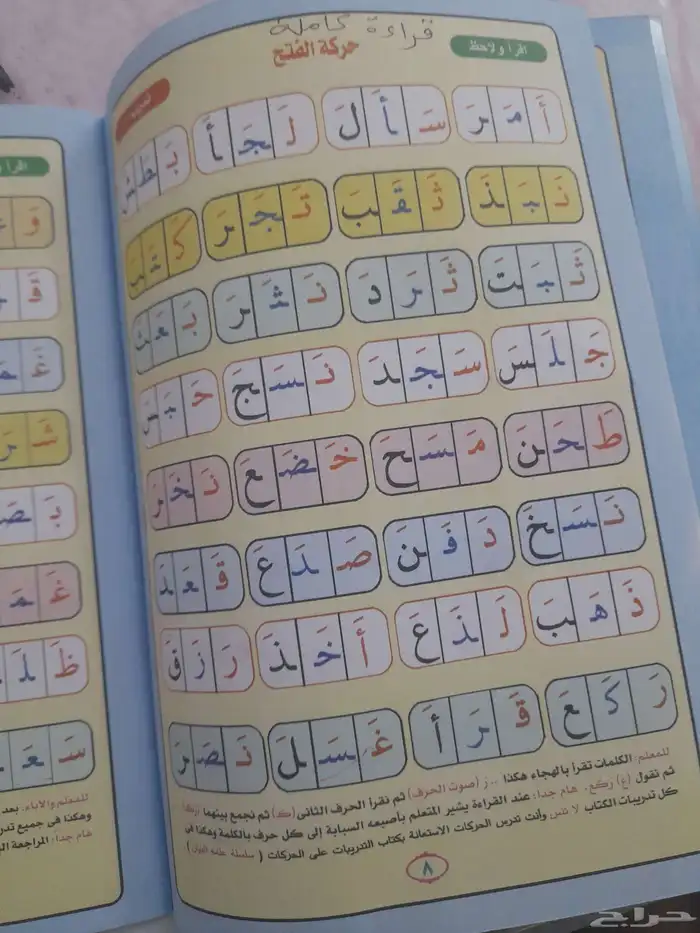 قراءة كاملة
اقرأ ولاحظ
حركة الفتح
أَمَرَ سَأَلَ لَجَأَ بَطَشَ
نَبَذَ ثَقَبَ تَجَرَ كَتَبَ
ثَبَتَ ثَرَدَ نَثَرَ بَعَثَ
جَلَسَ سَجَدَ نَسَجَ حَبَسَ
طَحَنَ مَسَحَ خَضَعَ نَخَرَ
نَسَخَ دَفَنَ صَدَعَ قَعَدَ
ذَهَبَ لَذَعَ أَخَذَ رَزَقَ
رَكَعَ قَرَأَ غَسَلَ نَصَرَ
للمعلم: الكلمات تقرأ بالهجاء هكذا .. رَ (صوت الحرف) ثم نقرأ الحرف الثانى (كَ) ثم نجمع بينهما (رَكَ)
ثم نقول (عَ) رَكَعَ. هام جدا: عند القراءة يشير المتعلم بأصبعه السبابة إلى كل حرف بالكلمة وهكذا فى
كل تدريبات الكتاب لا تنس وأنت تدرس الحركات الاستعانة بكتاب التدريبات على الحركات (سلسلة علمه البيان)
٨
اقرأ
للمعلم والآباء: بعد
وهكذا فى جميع
هام جدا: المراجعة
حراج